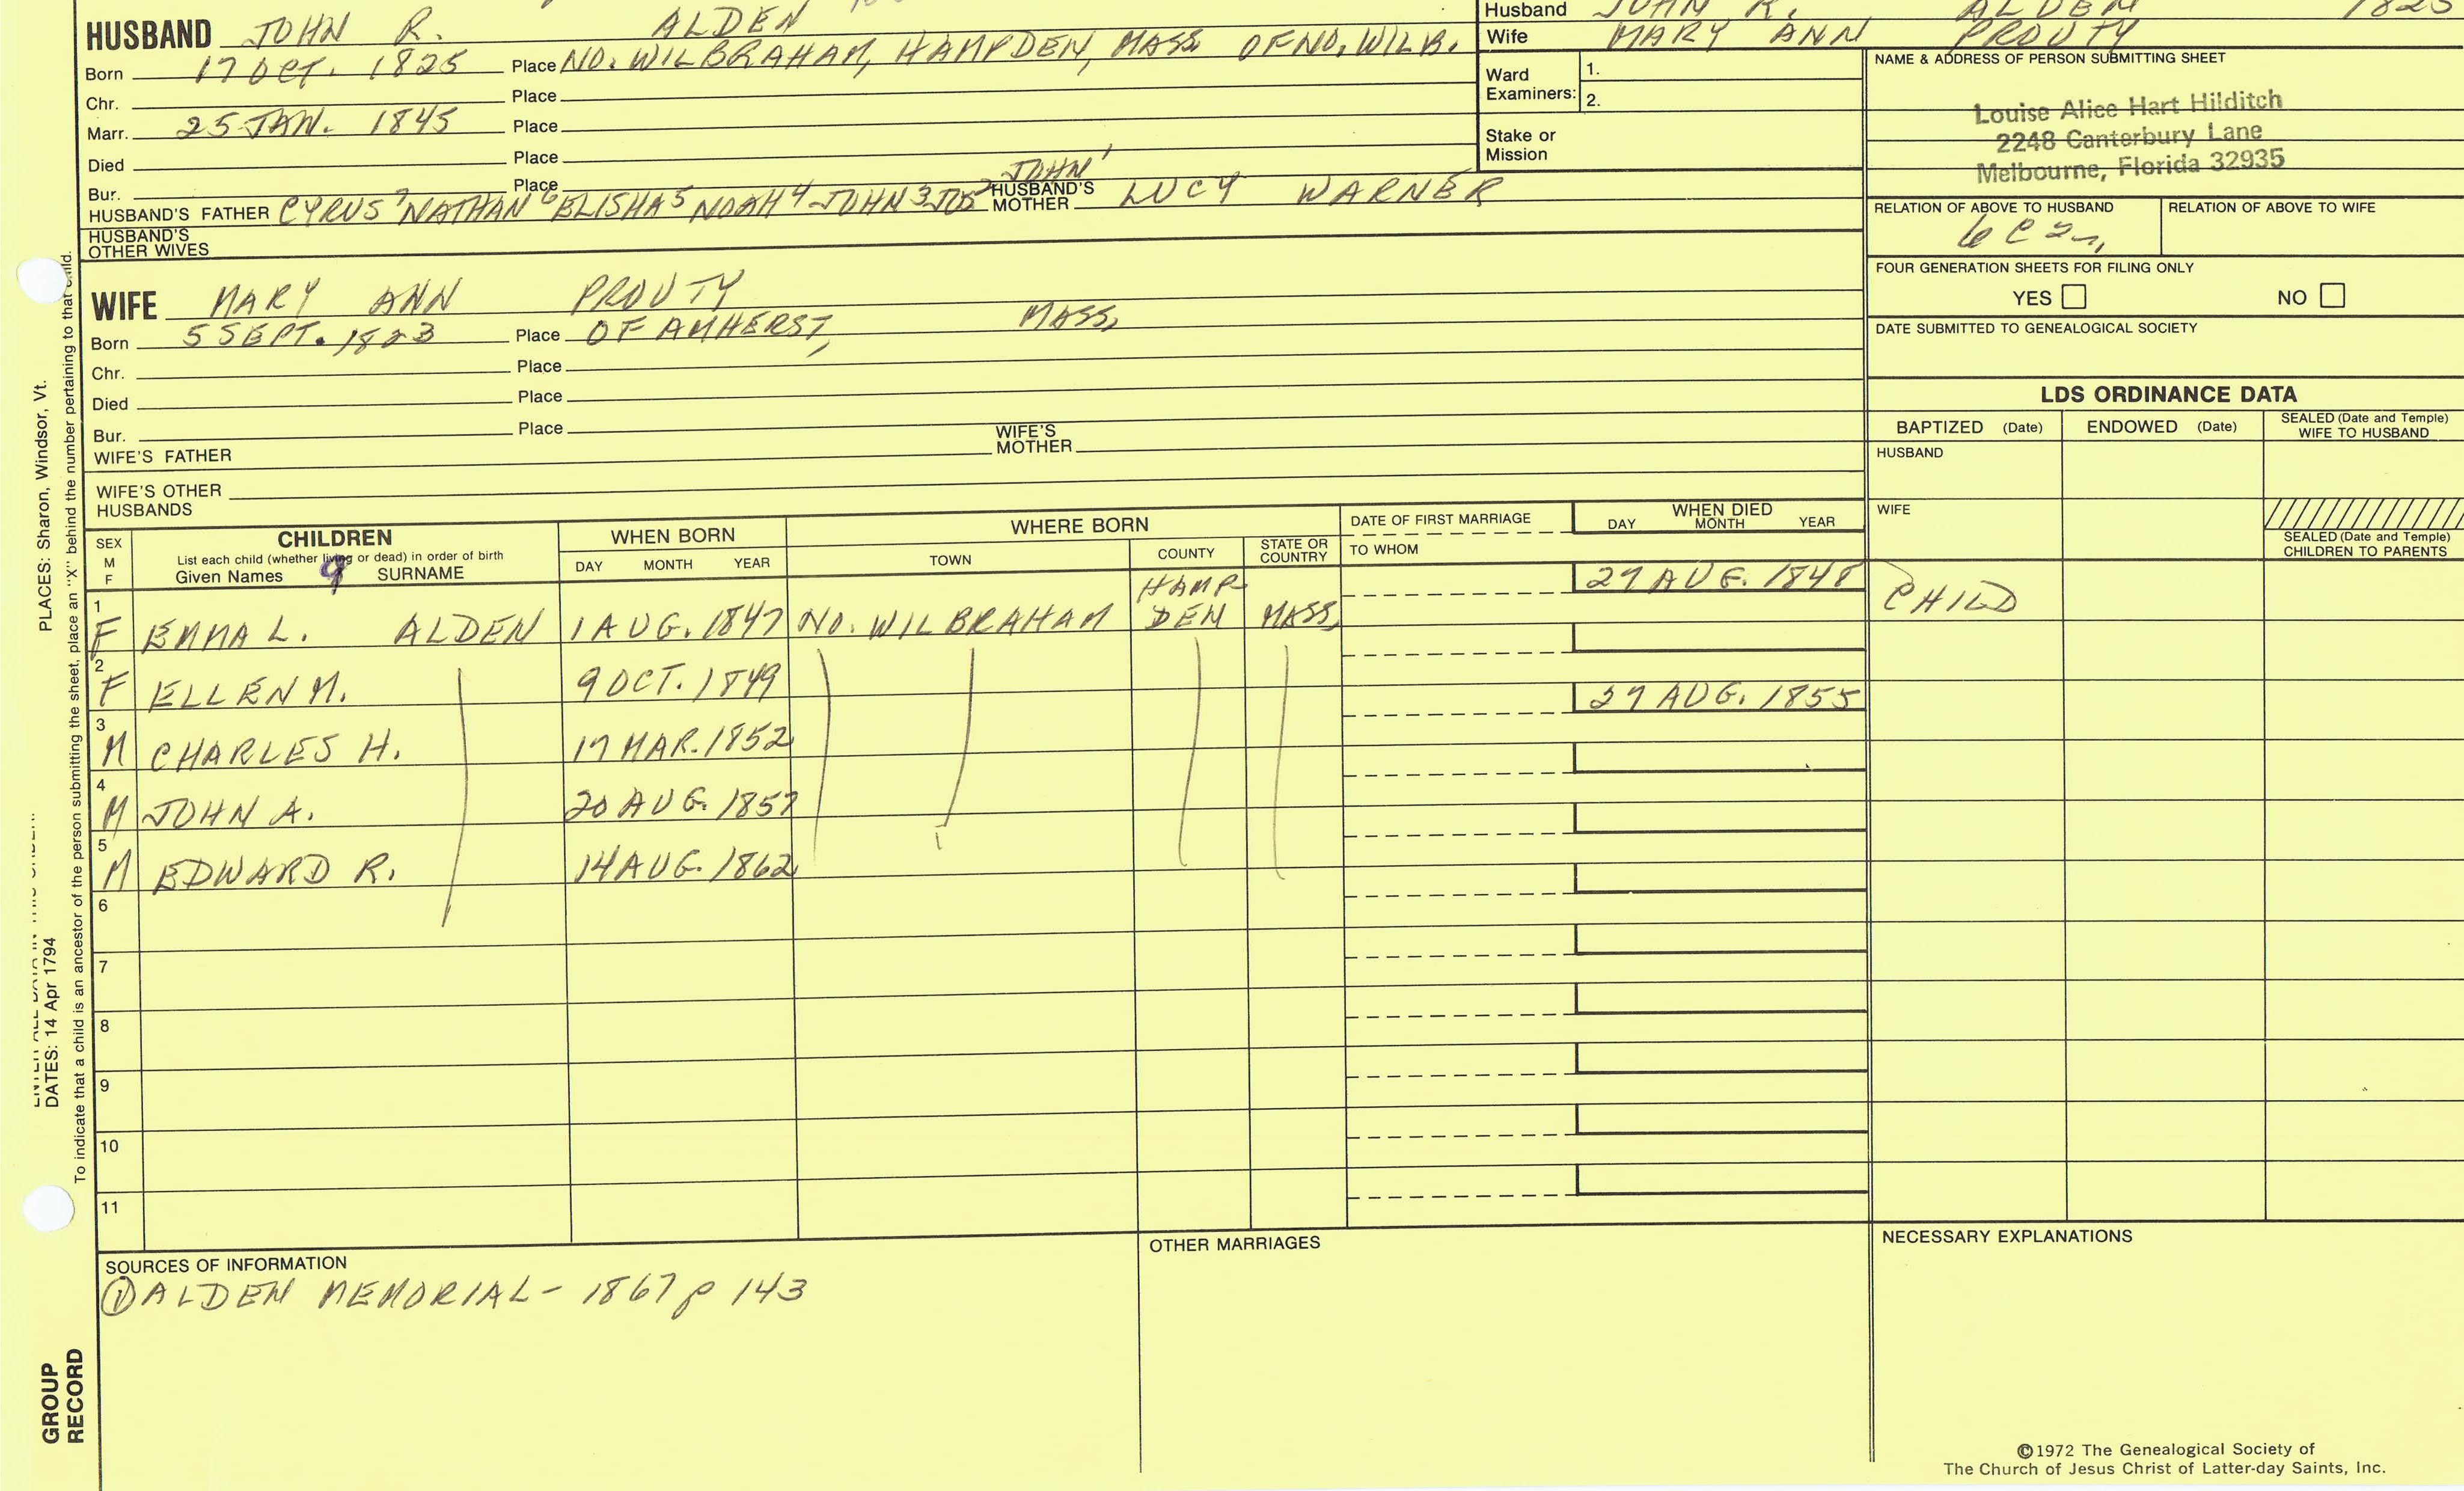 HUSBAND JOHN R. ALDEN
Born 17 OCT. 1825 Place NO. WILBRAHAM, HAMPDEN, MASS. OF NO. WILB.
Chr. Place
Marr. 25 JAN. 1845 Place
Died Place
Bur. Place
HUSBAND'S FATHER CYRUS 7 NATHAN 6 ELISHA 5 NOAH 4 JOHN 3 JOS 2 JOHN 1 HUSBAND'S MOTHER LUCY WARNER
HUSBAND'S OTHER WIVES
Husband JOHN R. ALDEN 1825
Wife MARY ANN PROUTY
Ward Examiners: 1.
2.
Stake or Mission
NAME & ADDRESS OF PERSON SUBMITTING SHEET
Louise Alice Hart Hilditch
2248 Canterbury Lane
Melbourne, Florida 32935
RELATION OF ABOVE TO HUSBAND RELATION OF ABOVE TO WIFE
FOUR GENERATION SHEETS FOR FILING ONLY
YES NO
DATE SUBMITTED TO GENEALOGICAL SOCIETY
WIFE MARY ANN PROUTY
Born 5 SEPT. 1823 Place OF AMHERST, MASS.
Chr. Place
Died Place
Bur. Place
WIFE'S FATHER WIFE'S MOTHER
WIFE'S OTHER HUSBANDS
LDS ORDINANCE DATA
BAPTIZED (Date) ENDOWED (Date) SEALED (Date and Temple) WIFE TO HUSBAND
HUSBAND
WIFE
SEALED (Date and Temple) CHILDREN TO PARENTS
SEX M F
CHILDREN
List each child (whether living or dead) in order of birth
Given Names SURNAME
WHEN BORN
DAY MONTH YEAR
WHERE BORN
TOWN COUNTY STATE OR COUNTRY
DATE OF FIRST MARRIAGE
TO WHOM
WHEN DIED
DAY MONTH YEAR
1 F EMMA L. ALDEN 1 AUG. 1847 NO. WILBRAHAM HAMP-DEN MASS. 27 AUG. 1848 CHILD
2 F ELLEN M. 9 OCT. 1849
3 M CHARLES H. 17 MAR. 1852 27 AUG. 1855
4 M JOHN A. 20 AUG. 1857
5 M EDWARD R. 14 AUG. 1862
6
7
8
9
10
11
SOURCES OF INFORMATION
① ALDEN MEMORIAL - 1867 p 143
OTHER MARRIAGES
NECESSARY EXPLANATIONS
©1972 The Genealogical Society of
The Church of Jesus Christ of Latter-day Saints, Inc.
PLACES: Sharon, Windsor, Vt.
DATES: 14 Apr 1794
To indicate that a child is an ancestor of the person submitting the sheet, place an "X" behind the number pertaining to that child.
GROUP
RECORD